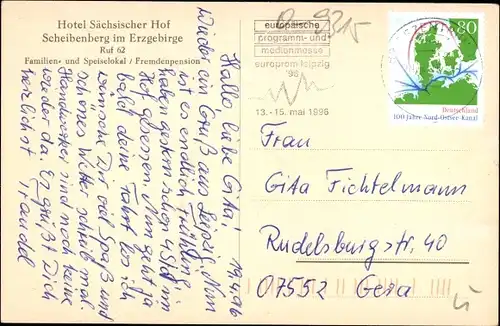 Hotel Sächsischer Hof
Scheibenberg im Erzgebirge
Ruf 62
Familien- und Speiselokal / Fremdenpension
19.4.96
Hallo liebe Gita!
Wieder ein Gruß aus Leipzig. Nun
ist es endlich Frühling
haben gestern schon 4 Std im
Hof gesessen. Nun geht ja
bald deine Fahrt los ich
wünsche Dir viel Spaß und
schönes Wetter schreib mal.
Handwerker sind noch keine
wieder da Es grüßt Dich
herzlichst
europäische
programm- und
medienmesse
europrom-leipzig
'96
13.-15. mai 1996
80
Deutschland
100 Jahre Nord-Ostsee-Kanal
Frau
Gita Fichtelmann
Rudelsburgstr. 40
07552 Gera